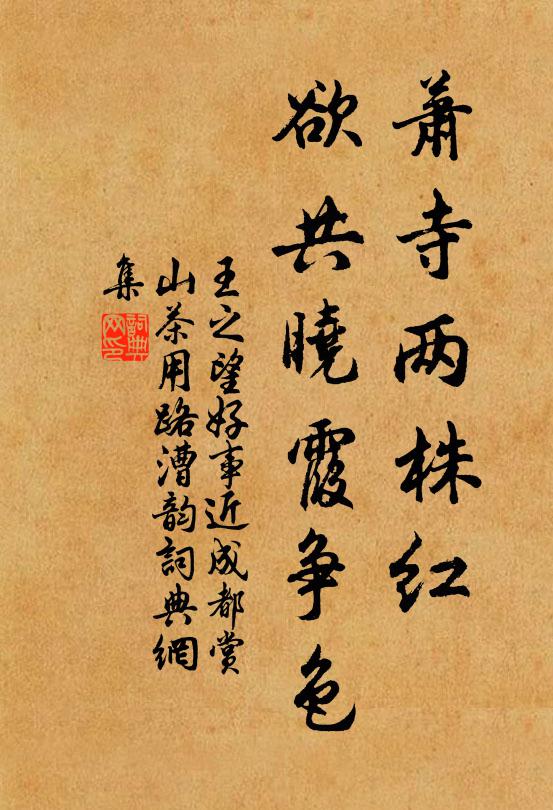 蕭寺两株红
欲共曉霞争色
王之望好事近成都賞
山茶用路漕韵詞典網
集
詞典
网印